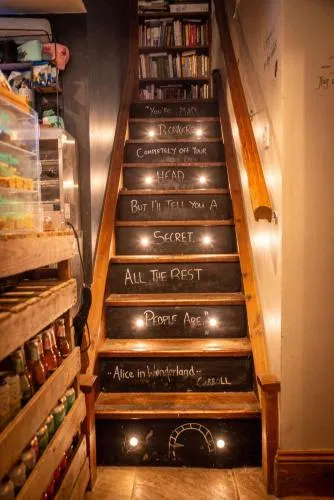 "You're Mad
Bonkers
Completely off Your
Head
But I'll Tell You A
Secret
All The Best
People Are"
~Alice in Wonderland~
Carroll